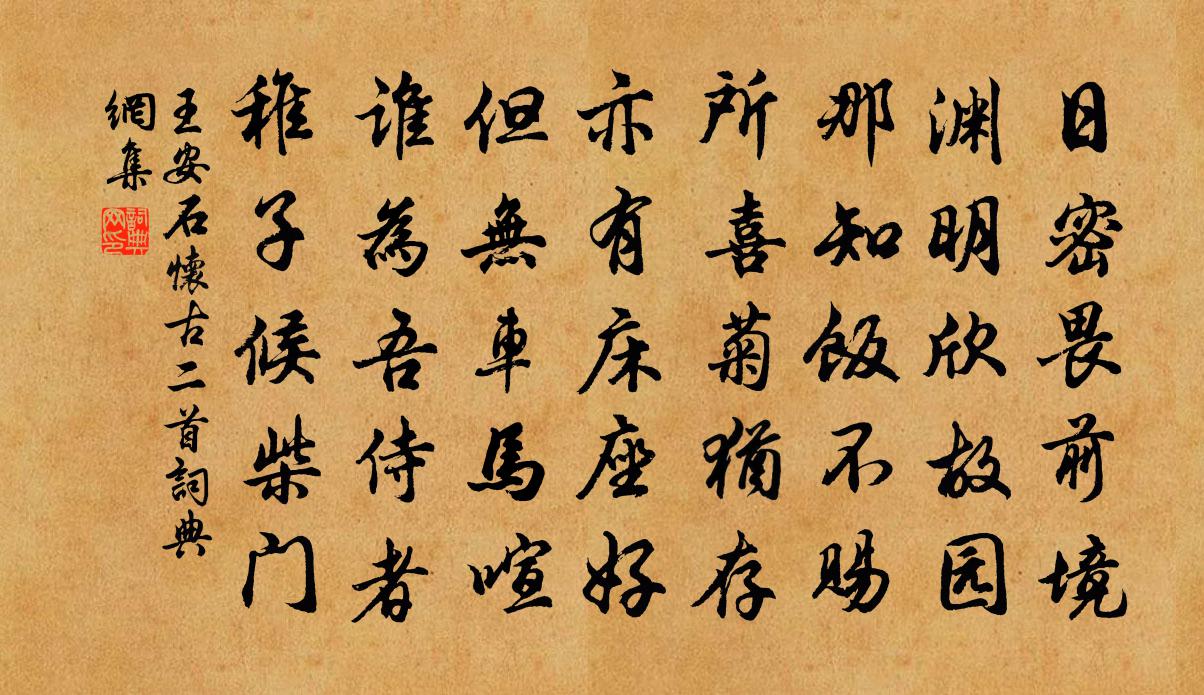 日密畏前境
渊明欣故园
那知饭不赐
所喜菊猶存
亦有床座好
但無車馬喧
谁為吾侍者
稚子候柴门
王安石懷古二首詞典
網集
詞典